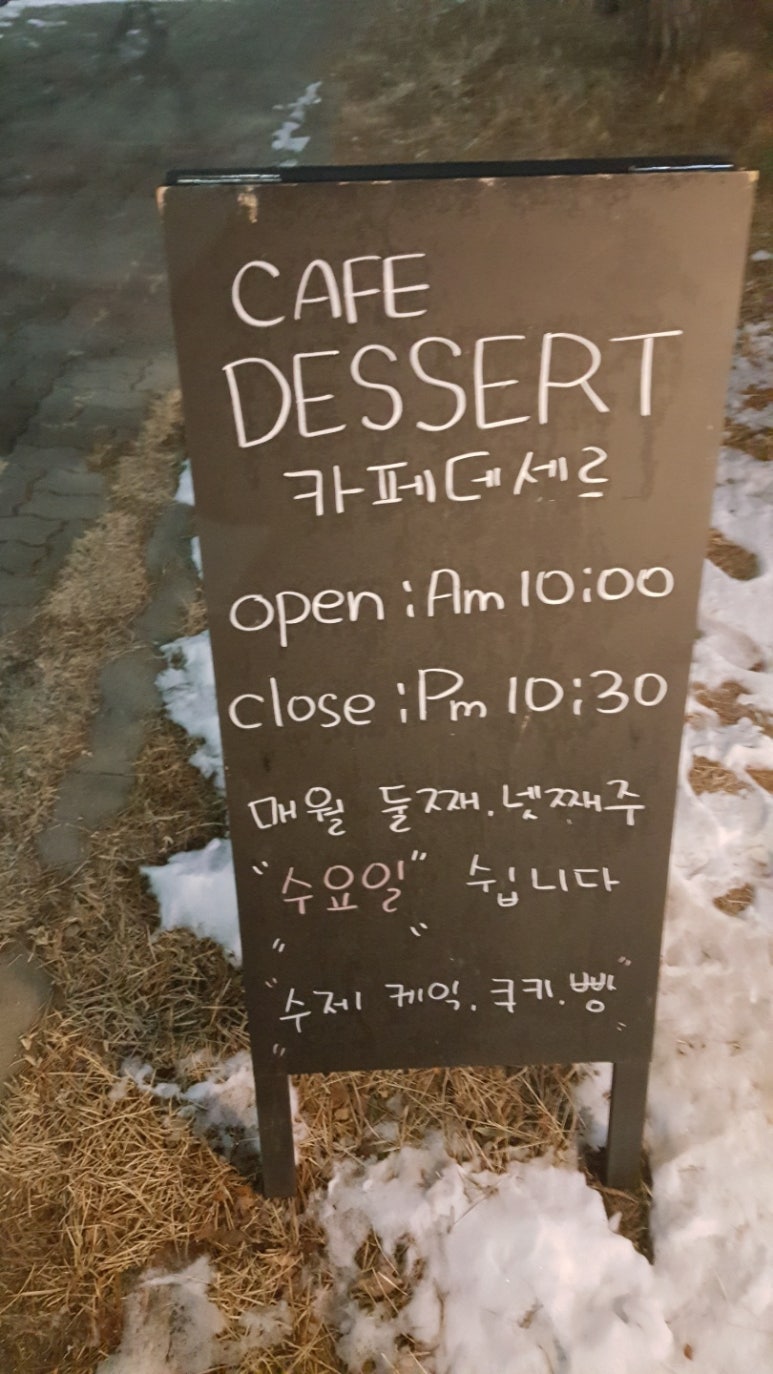 CAFE
DESSERT
카페데세르
open : Am 10:00
close : Pm 10:30
매월 둘째.넷째주
"수요일" 쉽니다
"수제 케익.쿠키.빵"